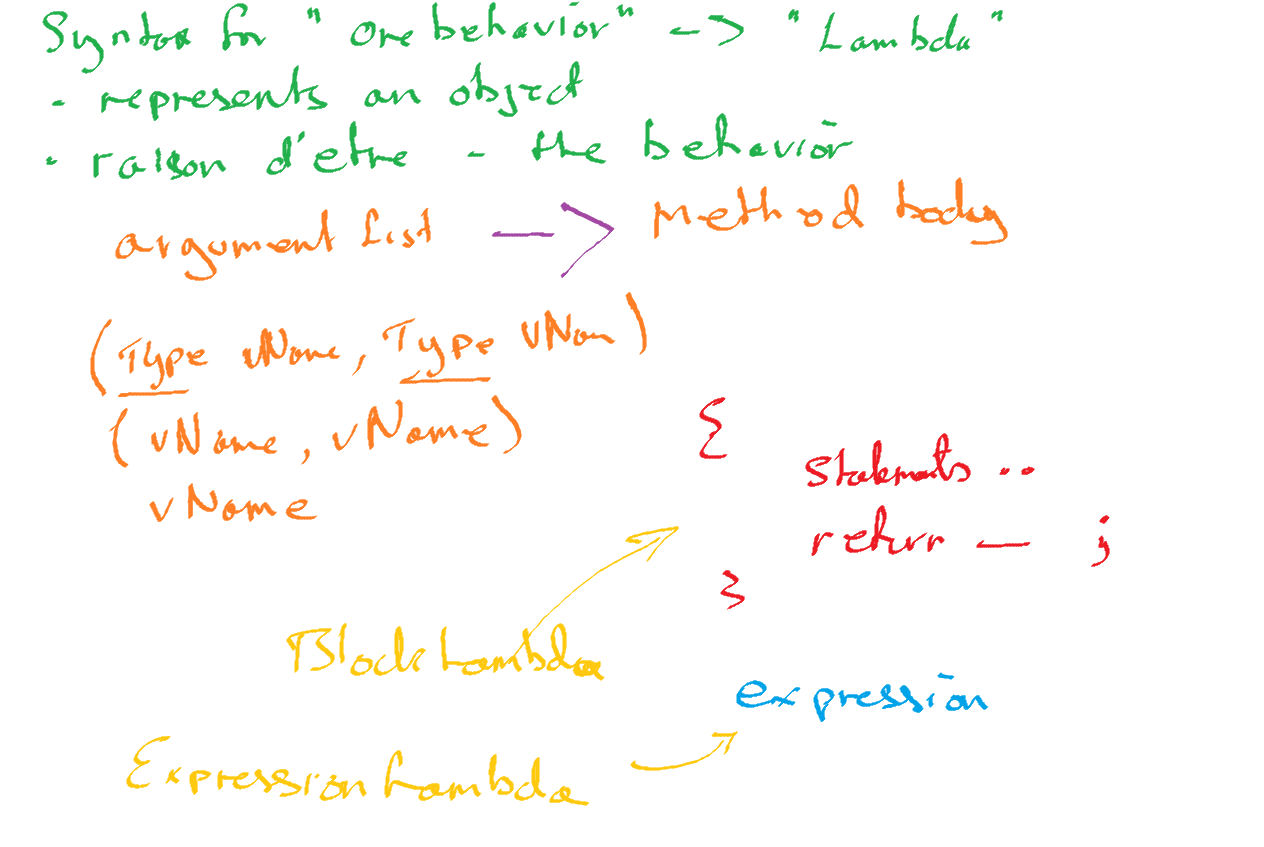 Syntax for "one behavior" -> "Lambda"
· represents an object
· raison d'etre - the behavior
argument list —> Method body
(Type vName, Type vNam)
(vName, vName)
vName
{
statements ..
return — ;
}
Block Lambda
expression
Expression Lambda